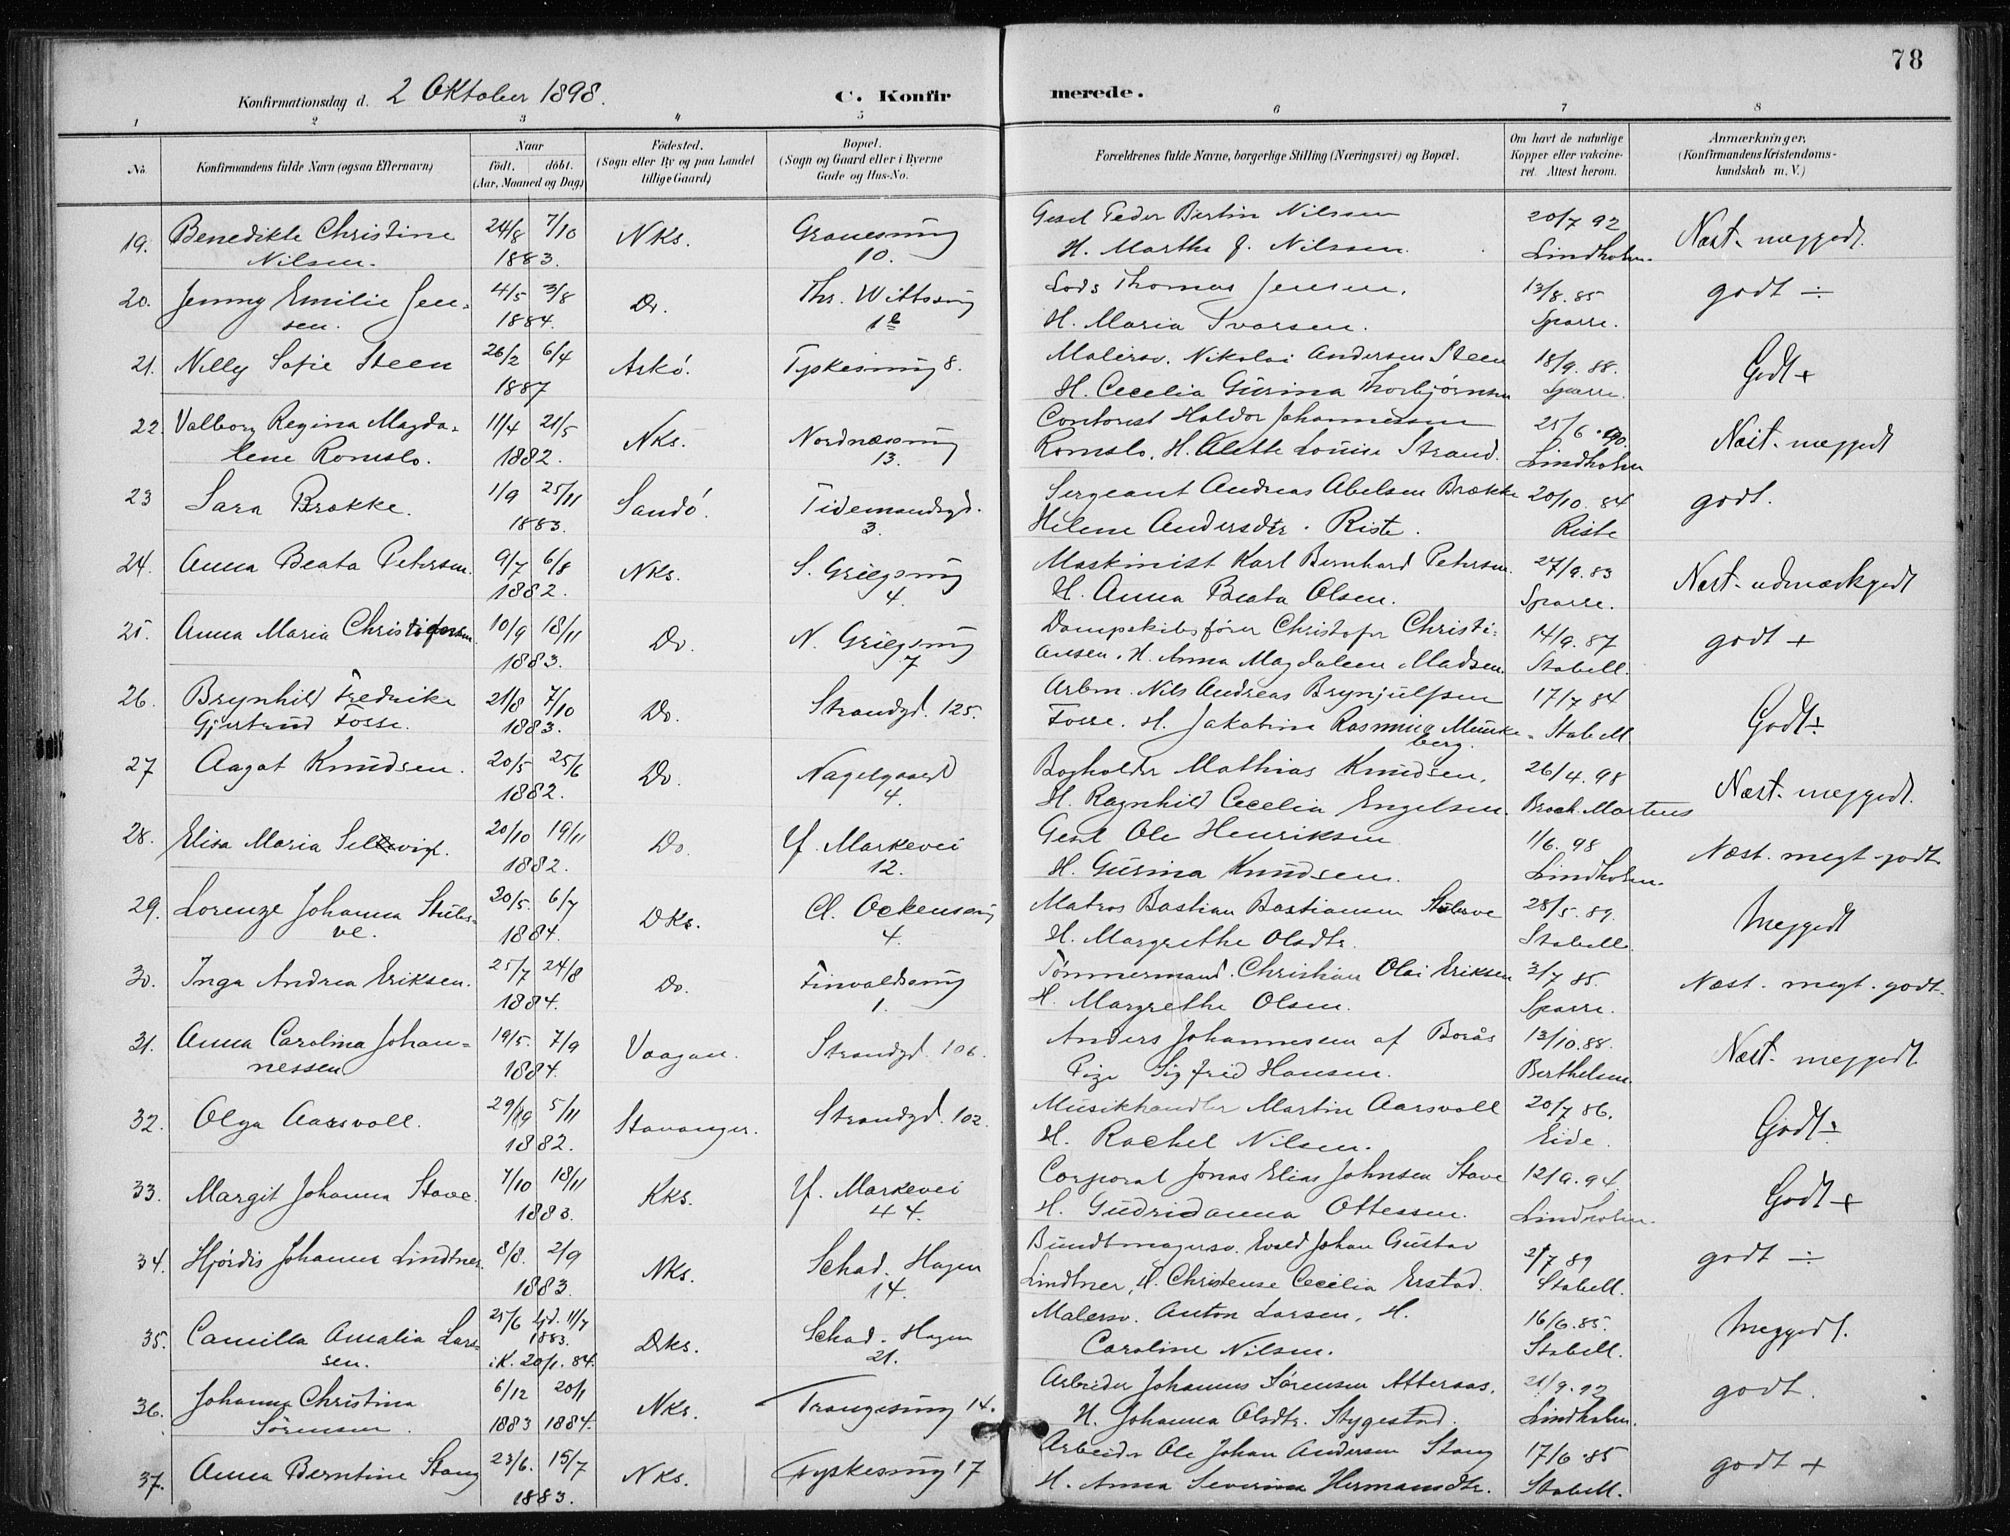 78
Konfirmationsdag d. 2 Oktober 1898.
C. Konfirmerede.
1 2 3 4 5 6 7 8
No.
Konfirmandens fulde Navn (ogsaa Efternavn)
Naar
født. døbt.
(Aar, Maaned og Dag)
Fødested.
(Sogn eller By og paa Landet
tillige Gaard)
Bopæl.
(Sogn og Gaard eller i Byerne
Gade og Hus-No.
Forældrenes fulde Navne, borgerlige Stilling (Næringsvei) og Bopæl.
Om havt de naturlige
Kopper eller vakcine-
ret. Attest herom.
Anmærkninger.
(Konfirmandens Kristendoms-
kundskab m. V.)
19. Benedikte Christine 24/8 7/10 NKs. Gesel Peder Bertin Nilssen 20/7 92
Nilsen. 1883. 10. H. Martha J. Nilssen. Lindholm. Næst. megjodt.
20. Jenny Emilie Jen- 4/5 3/8 Do. Thr. Wittssmg Lods Thomas Jensen. 13/8.85 godt ÷
sen. 1884. 1b H. Maria Ivarsen. Sparre.
21. Nilly Sofie Steen 26/2 6/4 Askö. Tyskesmug 8. Malersv. Nikolai Andersen Steen 18/9.88. Godt +
1887 H. Cecelia Gurina Thorbjørnsen Sparre.
22. Valborg Regina Magda- 11/4 21/5 NKs. Nordnæssmug Contorist Haldor Johannessen 25/6.90. Næst. meggodt
lene Romslo. 1882. 13. Romslo, H. Alette Louise Strand. Lindholm
23 Sara Brække. 1/9 25/11 Sandö. Tidemandsgd. Sergeant Andreas Abelsen Brække 20/10.84 godt.
1883. 3. Helene Andersdtr. Riste. Riste
24. Anna Beata Petersen. 9/7 6/8 NKs. S. Griegsmug Maskinist Karl Bernhard Petersen. 27/9.83 Næst. udmærkgodt
1882. 4. H. Anna Beata Olsen. Sparre.
25. Anna Maria Christofersen. 10/9 18/11 Do. N. Griegsmug Dampskibsfører Christofer Christi- 14/9.87 godt +
1883. 7 ansen, H. Anna Magdaleen Madsen. Stabell.
26. Brynhild Fredrike 21/8 7/10 Do. Strandgd. 125. Arbm. Nils Andreas Brynjulfsen 17/7 84 Godt ÷
Gjertrud Fosse. 1883. Fosse. H. Jakobine Rasmine Munke- Stabell
berg.
27 Aagot Knudsen. 20/5 25/6 Do. Nagelgaard Bogholder Mathias Knudsen, 26/4.98 Næst. meggodt.
1882. 4. H. Ragnhild Cecelia Engelsen. Brock. Martens
28. Elisa Maria Selsvig. 20/10 19/11 Do. Y. Markevei Gesel Ole Henriksen 1/6.98 Næst. megt godt
1882. 12. H. Gurina Knudsen. Lindholm.
29. Lorenze Johanna 20/5. 6/7 DKs. Cl. Ockensmug Matros Bastian Bastiansen 28/5.89. Meggodt
ve. 1884. 4. H. Margrethe Olsdtr. Stabell.
30. Inga Andrea Eriksen. 25/7 24/8 Do. Finvaldsmug Tömmermand. Christian Olai Eriksen 3/7 85. Næst. megt. godt.
1884. 1. H. Margrethe Olsen. Sparre.
31. Anna Carolina Johan- 19/5. 7/9 Vaagan. Strandgd. 106. Anders Johannesen af Borås 13/10.88. Næst. meggodt
nessen 1884. Pige Sigfrid Hansen. Berthelsen.
32. Olga Aarsvoll. 29/9 5/11 Stavanger. Strandgd. 102. Musikhandler Martin Aarsvoll 20/7 86. Godt ÷
1882. H. Rachel Nilsen. Eide.
33. Margit Johanna Stave. 7/10 18/11 KKs. Y. Markevei Corporal Jonas Elias Johnsen Stave 12/9.94. Godt +
1883. 44. H. Gudridanna Ottessen. Lindholm.
34. Hjørdis Johanna Lindtner. 8/8. 2/9 NKs. Schad. Hagen Bundtmagersv. Evald Johan Gustav 2/7 89 godt ÷
1883. 14. Lindtner, H. Christense Cecilia Erstad. Stabell.
35. Camilla Amalia Lars- 25/6 hjd. 11/7 Dks. Schad. Hagen Malersv. Anton Larsen, H. 16/6.85. Meggodt.
1883.
sen. i K. 20/1. 84. 21. Caroline Nilsen. Stabell.
36. Johanna Christina 6/12 20/1 NKs. Trangesmug 14. Arbeider Johannes Sörensen Atteraas. 21/9.92 godt.
Sörensen. 1883 1884. H. Johanna Olsdtr. Stygestad. Lindholm.
37. Anna Berntine Stang 23/6. 15/7 NKs. Tyskesmug 17 Arbeider Ole Johan Andersen Stang 17/6.85 godt +
1883. H. Anna Severine Hermansdtr. Stabell.